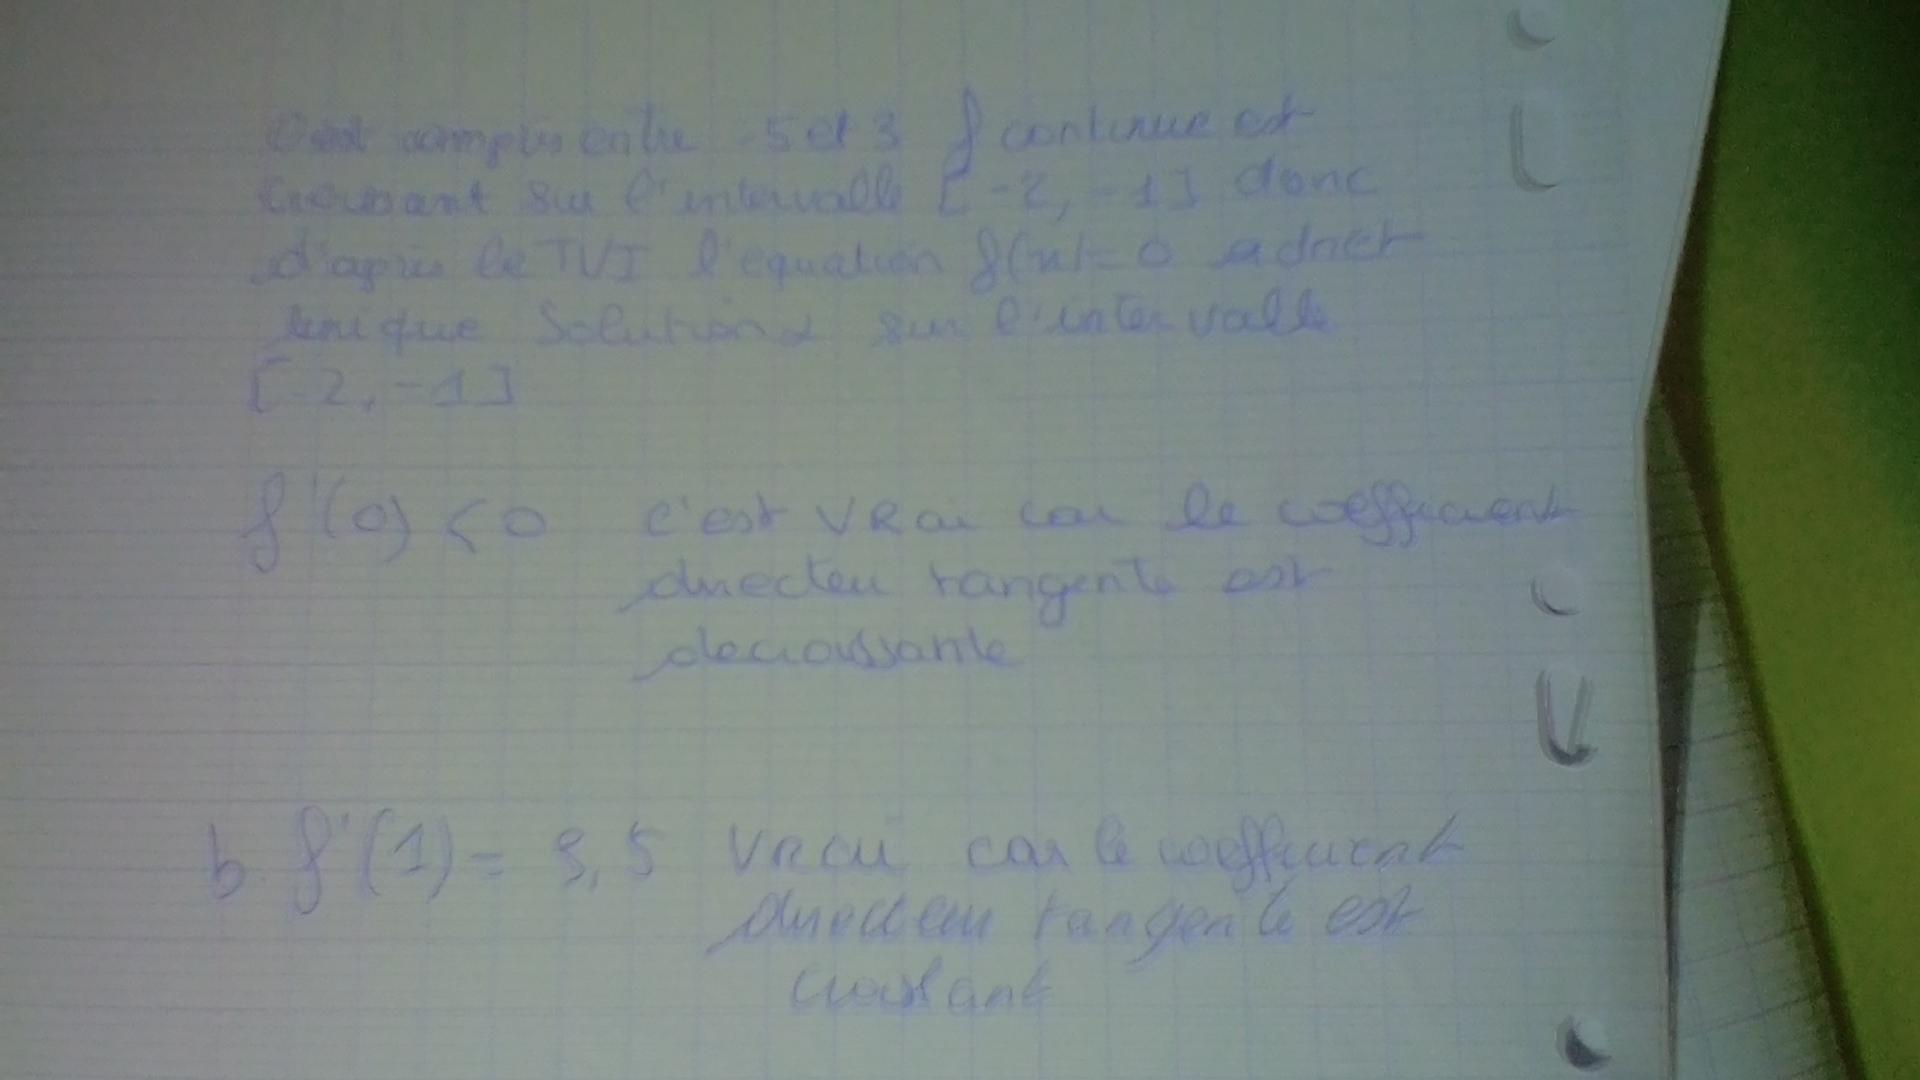 0 est compris entre -5 et 3 f continue est
croissant sur l'intervalle [-2, -1] donc
d'après le TVI l'equation f(x)=0 admet
unique Solution α sur l'intervalle
[-2, -1]
f'(0) < 0 c'est VRai car le coefficient
directeu tangente est
decroissante
b. f'(1) = 3,5 VRai car le coefficient
directeu tangente est
croissant